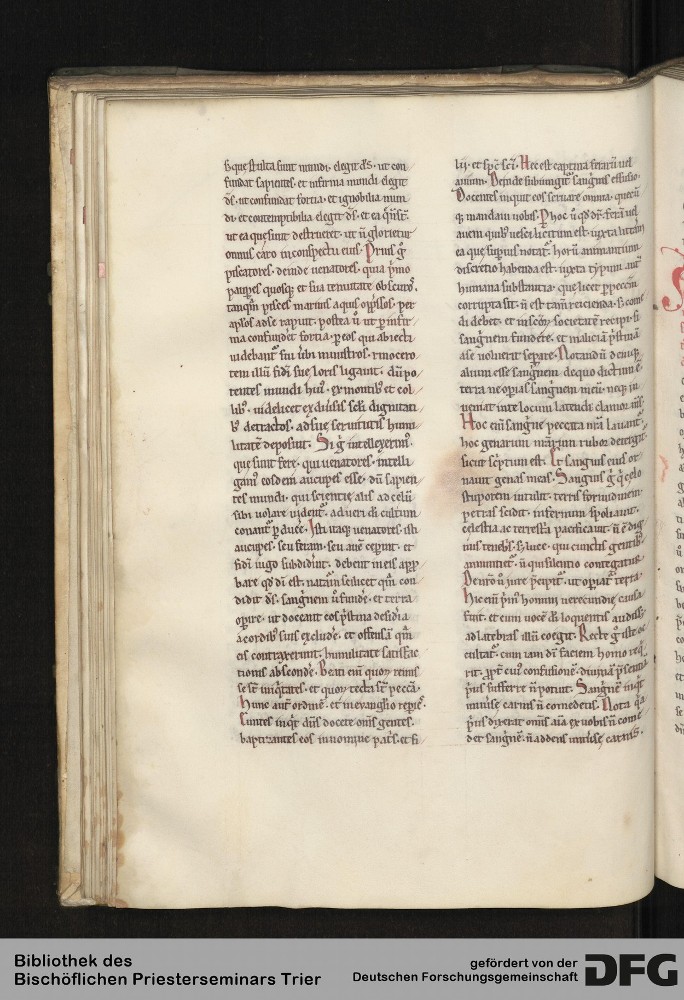 que stulta sunt mundi. elegit ds. ut con
fundat sapientes. et infirma mundi elegit
ds. ut confundat fortia. et ignobilia mun
di. et contemptibilia elegit ds. et ea q̃
ut ea que sunt destrueret. ut ñ glorietur
omnis caro in conspectu eius. Prius g̃
piscatores. deinde uenatores. quia p̃mo
pauperes quosq; et sua tenuitate obscuros.
tanq̃m pisces marinis aquis opp̃ssos. per
aplos ad se rapuit. postea ũ ut p infir
ma confunderet fortia. p eos qui abiecti
uidebant̃ sui uerbi ministros. rinocero
tem illũ fidi sue loris ligauit. dũ po
tentes mundi hui. ex montib; et col
lib; uidelicet ex diuisis scli dignitati
b; detractos. ad sue seruitutis humi
litatẽ deposuit. Si g̃ intelleximus
que sunt fere. qui uenatores. intelli
gam eosdem aucupes esse. dũ sapien
tes mundi. qui scientie alis ad celũ
sibi uolare uident. ad ueri di cultum
conant̃ pducẽ. Isti itaq; uenatores. isti
aucupes. seu feram. seu auẽ ceperint. et
fidi iugo subdidint. debent in eis
bare qd di est. naturam scilicet q̃m con
didit ds. sanguinem ũ fundẽ. et terra
opire. ut doceant eos pristina desidia
a cordib; suis excludẽ. et offensã q̃m
eis contraxerunt. humilitate satisfac
tionis abscondẽ. Beati enĩ quor remis
se st iniq̃tates. et quor tecta st peccã.
Hunc aut̃ ordinẽ. et in euanglio
Euntes inq̃t dñs docete oms gentes.
baptizantes eos in nomine pat̃s. et fi
lii. et spc sci. Hec est captura ferarũ uel
auium. Deinde subiungit sanguinis effusio.
Docentes inquit eos seruare omnia. quecũ
q; mandaui uobis. P hoc ũ qd dr. ferã uel
auem quib; uesci licitum est. iuxta litterã
ea que superius notat. horũ animantium
discretio habenda est. iuxta typum aut̃
humana substantia. que licet p peccm̃
corrupta sit. ñ est tam̃ reicienda. sed come
di debet. et in scor societatẽ recipi. si
sanguinem fundere. et maliciam pristinã
a se uoluerit separe. Notand ũ deniq;
alium esse sanguinem de quo dictum ẽ.
terra ne opias sanguinem meũ. neq; in
ueniat in te locum latendi clamor ms.
Hoc enĩ sanguine peccata nr̃a lauant̃.
hoc genarum nr̃arum rubor detergit̃.
sicut scptum est. Et sanguis eius or
nauit genas meas. Sanguis g̃ q̃ celo
stuporem intulit. terris formidinem.
petras scidit. infernum spoliauit.
celestia ac terrestria pacificauit. ñ ẽ dig
nus tenebris. s; luce. qui cunctis gentib;
annuntiet̃. ñ qui silentio contegatur.
De uro ũ iure pcipit. ut opiat̃ terra.
Hic enĩ p̃mi homini uerecundie causa
fuit. et cum uocẽ di loquentis audisset
ad latebras illũ coegit. Recte g̃ iste oc
cultat̃. cum iam di faciem homo
rit. ppt̃ cui confusionẽ. diuinã p̃sentiã
prius sufferre ñ potuit. Sanguinẽ inq̃t
uniuse carnis ñ comedetis. Nota q̃a
prius dixerat omis aĩa ex uobis ñ come
det sanguinẽ. ñ addens uniuse carnis.
Bibliothek des
Bischöflichen Priesterseminars Trier
gefördert von der
Deutschen Forschungsgemeinschaft
DFG